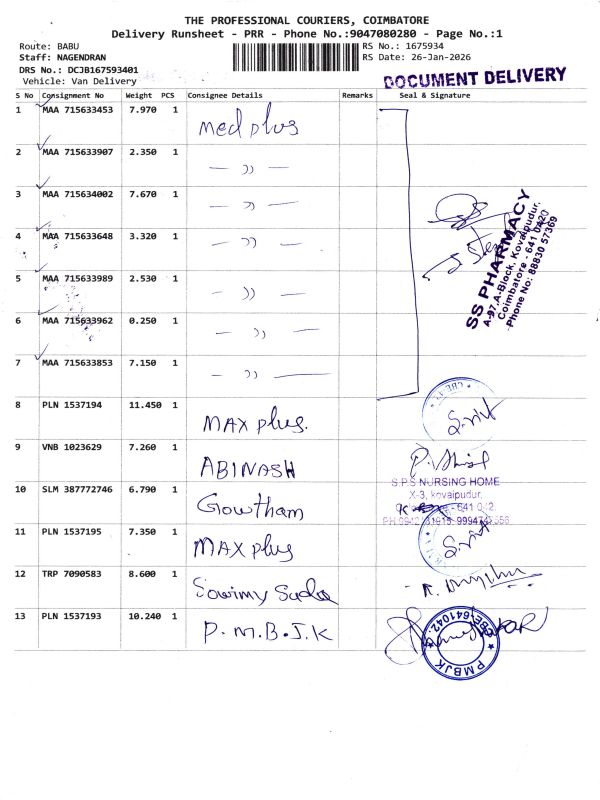 THE PROFESSIONAL COURIERS, COIMBATORE
Delivery Runsheet - PRR - Phone No.:9047080280 - Page No.:1
Route: BABU
RS No.: 1675934
Staff: NAGENDRAN
RS Date: 26-Jan-2026
DRS No.: DCJB167593401
Vehicle: Van Delivery
DOCUMENT DELIVERY
S No Consignment No Weight PCS Consignee Details Remarks Seal & Signature
1 MAA 715633453 7.970 1 Medplus
2 MAA 715633907 2.350 1 — )) —
3 MAA 715634002 7.670 1 — )) —
4 MAA 715633648 3.320 1 — )) —
5 MAA 715633989 2.530 1 — )) —
6 MAA 715633962 0.250 1 — )) —
7 MAA 715633853 7.150 1 — )) —
SS PHARMACY
A-97, A-Block, Kovaipudur,
Coimbatore - 641 042
Phone No: 88830 57369
8 PLN 1537194 11.450 1 MAX plus.
9 VNB 1023629 7.260 1 ABINASH
10 SLM 387772746 6.790 1 Gowtham
S.P.S NURSING HOME
X-3, kovaipudur,
641 042.
11 PLN 1537195 7.350 1 MAX plus
12 TRP 7090583 8.600 1
13 PLN 1537193 10.240 1 P.M.B.J.K
CBE-641042.
PMBJK